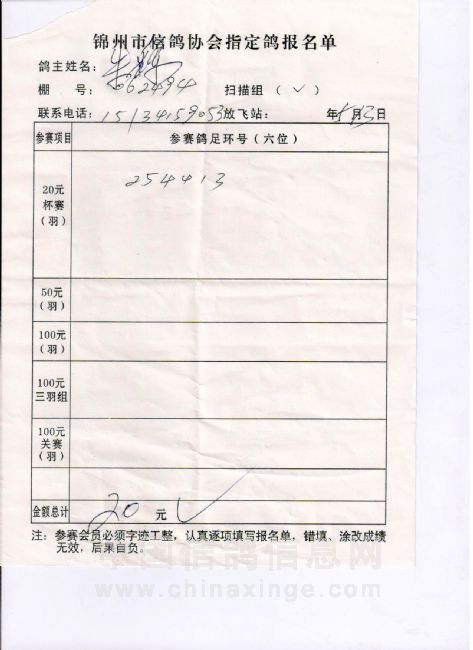 锦州市信鸽协会指定鸽报名单
鸽主姓名：
棚 号：062494 扫描组（✓）
联系电话：15134159053放飞站： 年5月13日
参赛项目 参赛鸽足环号（六位）
20元
杯赛
（羽）
254413
50元
（羽）
100元
（羽）
100元
三羽组
100元
关赛
（羽）
金额总计 20 元 ✓
注：参赛会员必须字迹工整，认真逐项填写报名单，错填、涂改成绩
无效，后果自负。
中国信鸽信息网
www.chinaxinge.com